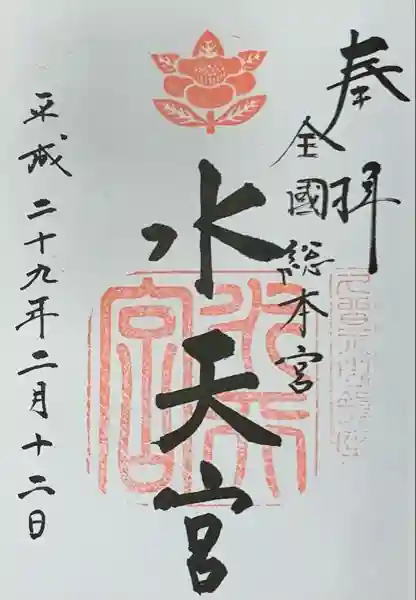 奉拝
全國総本宮
水天宮
平成二十九年二月十二日